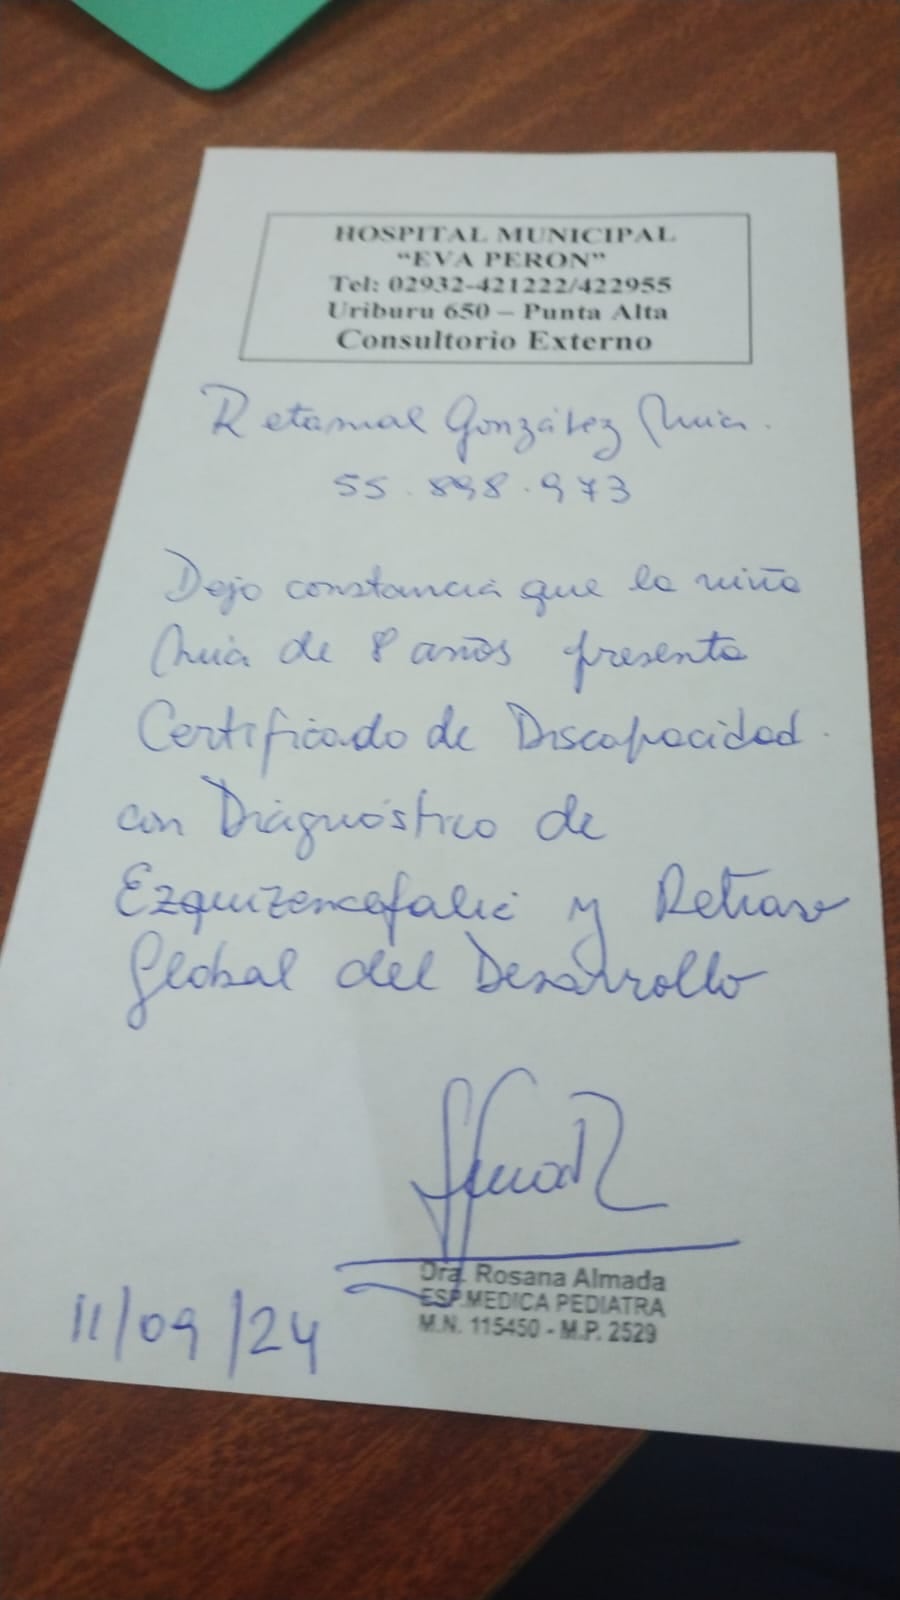 HOSPITAL MUNICIPAL
“EVA PERON”
Tel: 02932-421222/422955
Uriburu 650 – Punta Alta
Consultorio Externo
Retamal González Mia.
55.898.973
Dejo constancia que la niña
Mia de 8 años presenta
Certificado de Discapacidad
con Diagnóstico de
Ezquizencefalia y Retraso
Global del Desarrollo
Dra. Rosana Almada
ESP.MEDICA PEDIATRA
M.N. 115450 - M.P. 2529
11/09/24